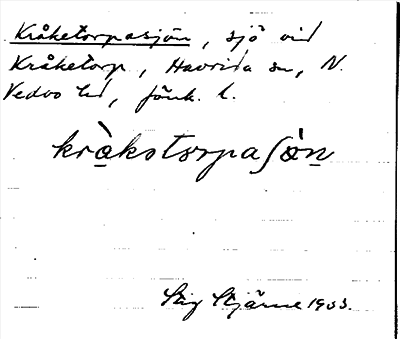 Kråketorpasjön, sjö vid
Kråketorp, Havrida sn, N.
Vedbo hd, Jönk. l.
kràkstorpaʃòn
Stig Stjärne 1933.